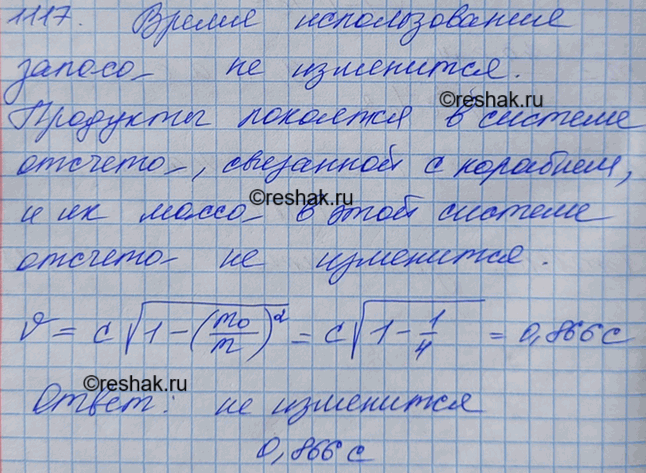 1117. Время использования
запаса не изменится.
©reshak.ru
Продукты покоятся в системе
отсчета, связанной с кораблем,
©reshak.ru
и их масса в этой системе
отсчета не изменится.
v = c√(1-(m₀/m)²) = c√(1-1/4) = 0,866c
©reshak.ru
Ответ: не изменится
0,866c